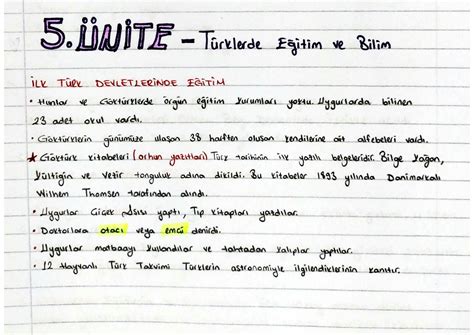 5. ÜNİTE - Türklerde Eğitim ve Bilim
İLK TÜRK DEVLETLERİNDE EĞİTİM
• Hunlar ve Göktürklerde örgün eğitim kurumları yoktu Uygurlarda bilinen
23 adet okul vardı.
• Göktürklerin günümüze ulaşan 38 harften oluşan kendilerine ait alfebeleri vardı.
★ Göktürk kitabeleri (orhun yazıtları) Türk tarihinin ilk yazılı belgeleridir. Bilge Kağan,
Kültigin ve Vezir tonyukuk adına dikildi. Bu kitabeler 1893 yılında Danimarkalı
Wilhem Thomsen tarafından alındı.
• Uygurlar Çiçek Aşısı yaptı, Tıp kitapları yazdılar.
• Doktorlara otacı veya emçi denirdi.
• Uygurlar matbaayı kullandılar ve tahtadan kalıplar yaptılar.
• 12 Hayvanlı Türk Takvimi Türklerin astronomiyle ilgilendiklerinin kanıtır.